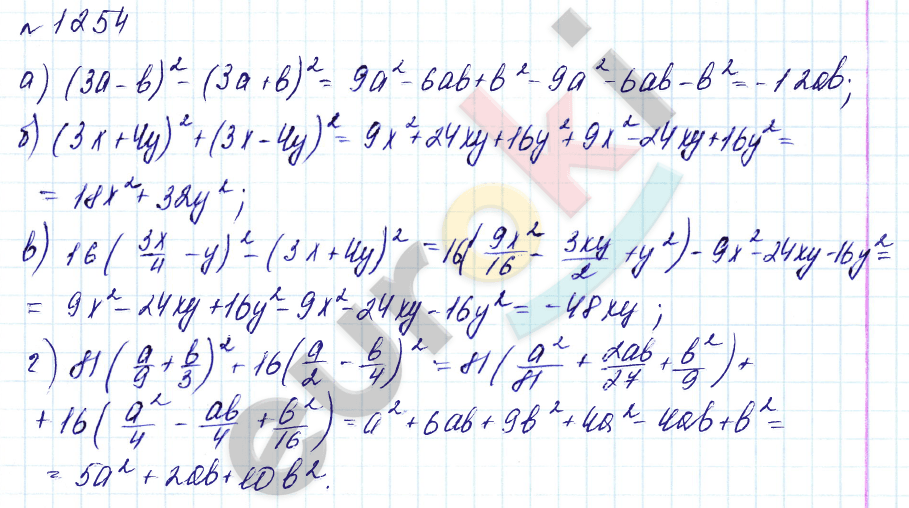 №1254
а) (3a - b)² - (3a + b)² = 9a² - 6ab + b² - 9a² - 6ab - b² = -12ab;
б) (3x + 4y)² + (3x - 4y)² = 9x² + 24xy + 16y² + 9x² - 24xy + 16y² =
= 18x² + 32y²;
в) 16(3x/4 - y)² - (3x + 4y)² = 16(9x²/16 - 3xy/2 + y²) - 9x² - 24xy - 16y² =
= 9x² - 24xy + 16y² - 9x² - 24xy - 16y² = -48xy;
г) 81(a/9 + b/3)² + 16(a/2 - b/4)² = 81(a²/81 + 2ab/27 + b²/9) +
+ 16(a²/4 - ab/4 + b²/16) = a² + 6ab + 9b² + 4a² - 4ab + b² =
= 5a² + 2ab + 10b².
euroki